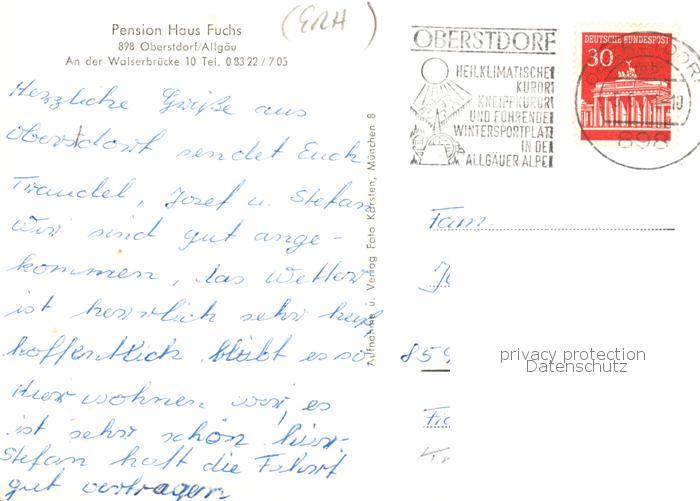 Pension Haus Fuchs
898 Oberstdorf/Allgäu
An der Walserbrücke 10 Tel. 0 83 22 / 7 05
(ERH)
Herzliche Grüße aus
Oberstdorf sendet Euch
Traudel, Josef u. Stefan
Wir sind gut ange-
kommen, das Wetter
ist herrlich sehr heiß
hoffentlich bleibt es so
Hier wohnen wir, es
ist sehr schön hier
Stefan hat die Fahrt
gut vertragen
Aufnahme u. Verlag Foto Kersten, München 8
OBERSTDORF
HEILKLIMATISCHE
KURORT
KNEIPPKURORT
UND FÜHRENDE
WINTERSPORTPLATZ
IN DE
ALLGÄUER ALPE
DEUTSCHE BUNDESPOST
30
898
Fam.
859
privacy protection
Datenschutz